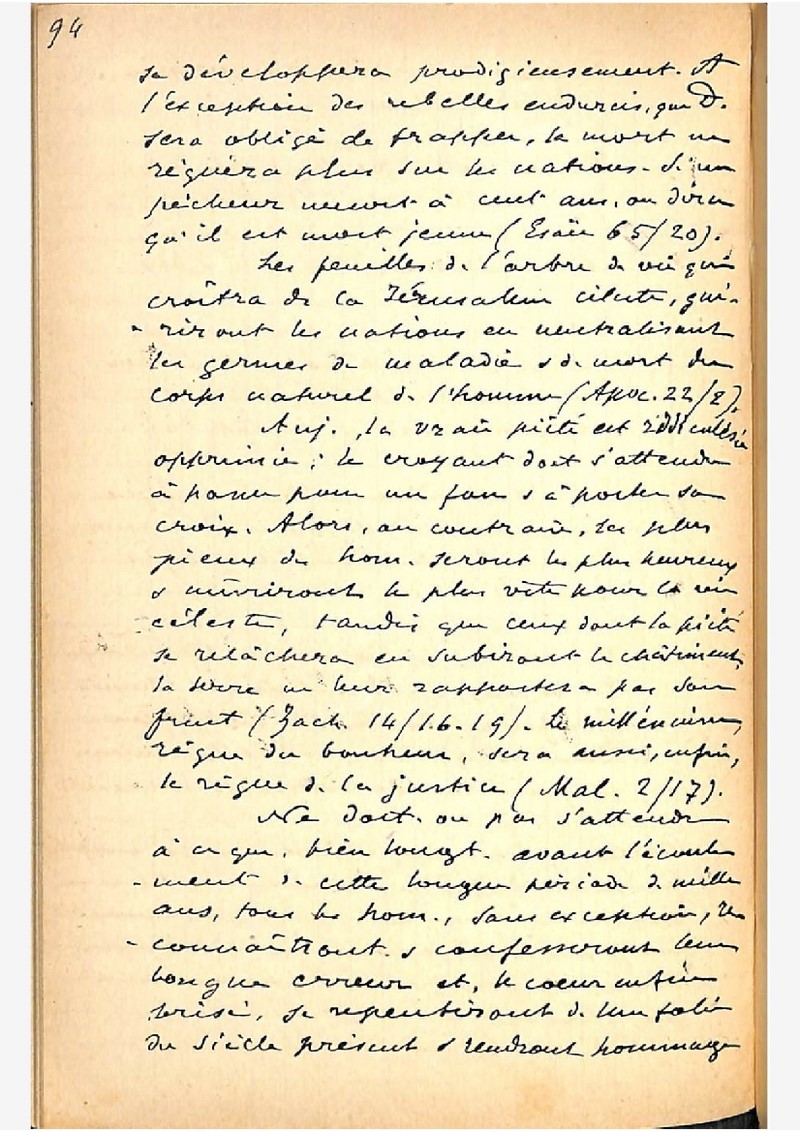 94
se développera prodigieusement. A
l'exception des rebelles endurcis, que D.
sera obligé de frapper, la mort ne
règnera plus sur les nations. Si un
pécheur meurt à cent ans, on dira
qu'il est mort jeune (Esaïe 65/20).
Les feuilles de l'arbre de vie qui
croîtra de la Jérusalem céleste, gué-
riront les nations en neutralisant
les germes de maladie s de mort du
corps naturel de l'homme (Apoc. 22/2).
Auj., la vraie piété est ridiculisée
opprimée ; le croyant doit s'attendre
à passer pour un fou s à porter sa
croix. Alors, au contraire, les plus
pieux des hom. seront les plus heureux
s mûriront le plus vite pour la vie
céleste, tandis que ceux dont la piété
se relâchera en subiront le châtiment,
la terre ne leur rapportera pas son
fruit (Zach. 14/16-19). Le millénium,
règne du bonheur, sera aussi, enfin,
le règne d. la justice (Mal. 2/17).
Ne doit-on pas s'attendre
à ce que, bien longt. avant l'écoule
-ment d. cette longue période d. mille
ans, tous les hom., sans exception, re
-connaîtront s confesseront leur
longue erreur et, le coeur enfin
brisé, se repentiront d. leur folie
du siècle présent s rendront hommage